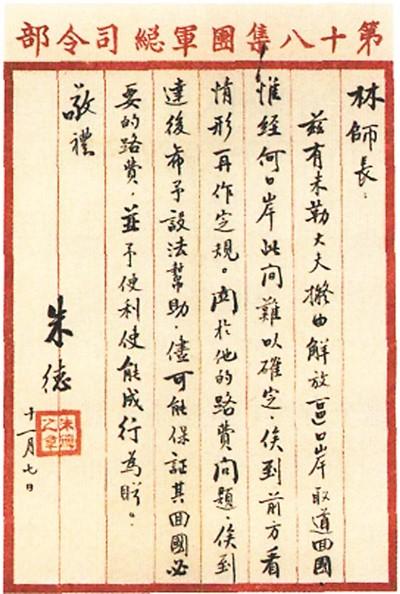 第十八集團軍總司令部
林師長：
茲有米勒大夫擬由解放區口岸取道回國，
惟經何口岸此間難以確定，俟到前方看
情形再作定規。関於他的路費问題，俟到
達後希予設法幫助，儘可能保証其回國必
要的路費，並予便利使能成行為盼。
敬禮
朱德
十一月七日
朱德之章